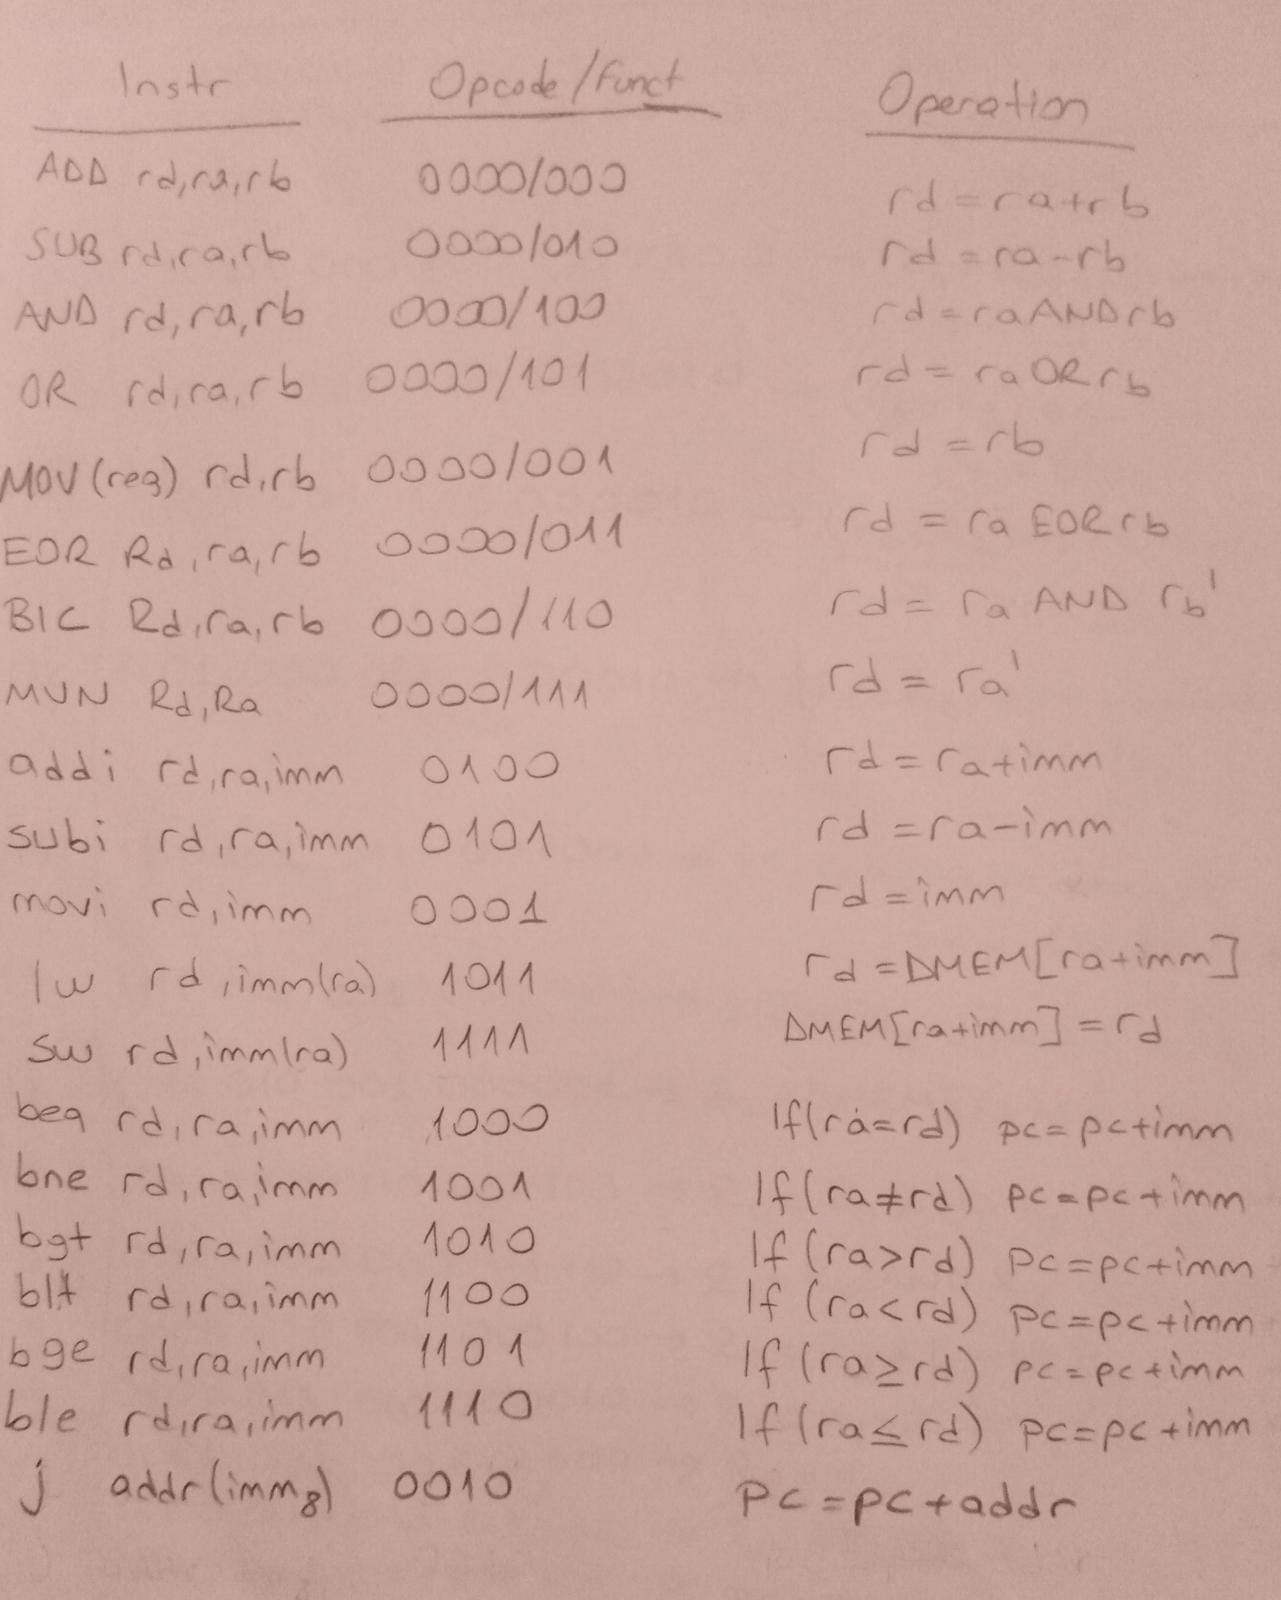 Instr Opcode/Funct Operation
ADD rd,ra,rb 0000/000 rd=ra+rb
SUB rd,ra,rb 0000/010 rd=ra-rb
AND rd,ra,rb 0000/100 rd=raANDrb
OR rd,ra,rb 0000/101 rd=raORrb
MOV(reg) rd,rb 0000/001 rd=rb
EOR Rd,ra,rb 0000/011 rd=ra EORrb
BIC Rd,ra,rb 0000/110 rd=ra AND rb'
MVN Rd,Ra 0000/111 rd=ra'
addi rd,ra,imm 0100 rd=ra+imm
subi rd,ra,imm 0101 rd=ra-imm
movi rd,imm 0001 rd=imm
lw rd,imm(ra) 1011 rd=DMEM[ra+imm]
sw rd,imm(ra) 1111 DMEM[ra+imm]=rd
beq rd,ra,imm 1000 If(ra=rd) pc=pc+imm
bne rd,ra,imm 1001 If(ra≠rd) pc=pc+imm
bgt rd,ra,imm 1010 If(ra>rd) pc=pc+imm
blt rd,ra,imm 1100 If(ra<rd) pc=pc+imm
bge rd,ra,imm 1101 If(ra≥rd) pc=pc+imm
ble rd,ra,imm 1110 If(ra≤rd) pc=pc+imm
j addr(imm8) 0010 PC=pc+addr